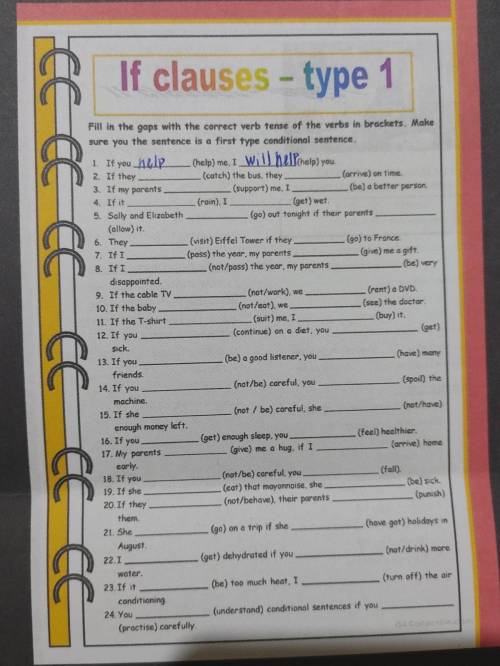 If clauses - type 1
Fill in the gaps with the correct verb tense of the verbs in brackets. Make
sure you the sentence is a first type conditional sentence.
1. If you help (help) me, I will help (help) you.
2. If they __________ (catch) the bus, they __________ (arrive) on time.
3. If my parents __________ (support) me, I __________ (be) a better person.
4. If it __________ (rain), I __________ (get) wet.
5. Sally and Elizabeth __________ (go) out tonight if their parents __________
(allow) it.
6. They __________ (visit) Eiffel Tower if they __________ (go) to France.
7. If I __________ (pass) the year, my parents __________ (give) me a gift.
8. If I __________ (not/pass) the year, my parents __________ (be) very
disappointed.
9. If the cable TV __________ (not/work), we __________ (rent) a DVD.
10. If the baby __________ (not/eat), we __________ (see) the doctor.
11. If the T-shirt __________ (suit) me, I __________ (buy) it.
12. If you __________ (continue) on a diet, you __________ (get)
sick.
13. If you __________ (be) a good listener, you __________ (have) many
friends.
14. If you __________ (not/be) careful, you __________ (spoil) the
machine.
15. If she __________ (not / be) careful, she __________ (not/have)
enough money left.
16. If you __________ (get) enough sleep, you __________ (feel) healthier.
17. My parents __________ (give) me a hug, if I __________ (arrive) home
early.
18. If you __________ (not/be) careful, you __________ (fall).
19. If she __________ (eat) that mayonnaise, she __________ (be) sick.
20. If they __________ (not/behave), their parents __________ (punish)
them.
21. She __________ (go) on a trip if she __________ (have got) holidays in
August.
22. I __________ (get) dehydrated if you __________ (not/drink) more
water.
23. If it __________ (be) too much heat, I __________ (turn off) the air
conditioning.
24. You __________ (understand) conditional sentences if you __________
(practise) carefully.